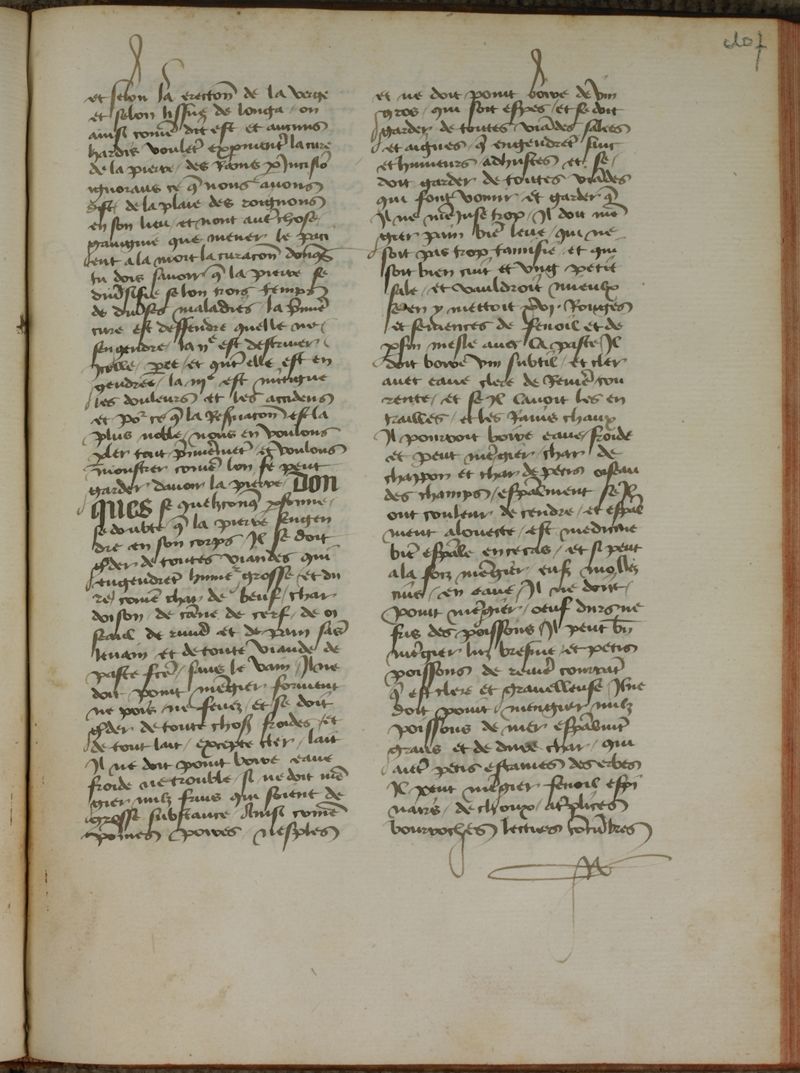 et selon la erection̄ de la verge
et selon lissue de longa / on
ainsi com̄e dit est et aucuns
hardis voulet̄ la cure
de la pierre / des Rains Incisiō
ignorans ce q̄ nous auons
dit de la plaie des roignons
en son lieu / et nont aut̄ chose
que mener le paci
ent a la mort la curacion̄ doncq̄s
tu dois sauoir q̄ la pierre se
diu̅sifie selon trois temps
de diu̅ses maladies / la p̄mie᷑
cure est deffendre quelle ne
sengendre / la ije est destruire
Icelle / et qn̄t elle est en
gendree / la iije est mitigue
les douleurs et les accidens
et po᷑ ce q̄ la est la
plus noble nous en voulons
pler tout p̄mieremēt / et voulons
monstrer com̄e lon se peut
garder dauoir la pierre / Don
ques se quelconq̄ p̄sonne
se doubte q̄ la pierre sengen
dre en son corps Il se doit
gder de toutes viandes qui
engendret̄ hume᷑ grosse / et du
re com̄e char de beuf / char
doison / de de cerf / de oi
seaulx de riuie᷑ et de pain sās
leuain et de toute viande de
paste sans le vain / Il ne
doit point mēgier forment
ne pois ne feues / et se doit
gder de toute chose froides / et
de tout lait / excepte cler / lait
Il ne doit point boire eaue
froide ne trouble / Il ne doit mē
gier nulz fruis qui soient de
grosse substance / Ainsi com̄e
pom̄es poires / nesples
et ne doit point boire de vin
gros / qui soit espes / et se doit
garder de toutes viādes salees
et aigues / q̄ engendret̄ sanc
et humeurs adhustes et se
doit garder de toutes viādes
qui font vomir et garder q̄
Il ne trop / Il doit mē
gier pain biē leue / qui ne
soit pas trop tamisie / et qui
soit bien cuit et vng petit
sale / et vauldroit mieulx
se on y mettoit Rouges
et semences de fenoil et de
p̄sin mesle auec la paste Il
doit boire vin subtil / et cler
auec eaue clere de Riuie᷑ cou
rente / et se Il auoit les en
trailles / et les Rains chaux
Il pourroit boire eaue froide
et peut mēgier char de
chappon et char de petis oiseau
des champs / esp̄alment se Ilz
ont couleur de cendre / et esp̄al
ment aloueste / est medicine
biē esp̄ale en ce cas / et si peut
a la fois mēgier eufz mollez
cuis / en eaue / Il ne doit
point mēgier / oeuf durs ne
fris des poissons / Il peut bn̄
mēgier bresme et petis
poissons de riuie᷑ courrāt
q̄ est clere et grauelleuse Il ne
doit point mengier nulz
poissons de mer esp̄almēt
grans et de dure char / qui
aut̄ petis estains des erbes
Il peut mēgier fenoil espi
nars / de choux / arplices
bourroches lectues cōcōbres